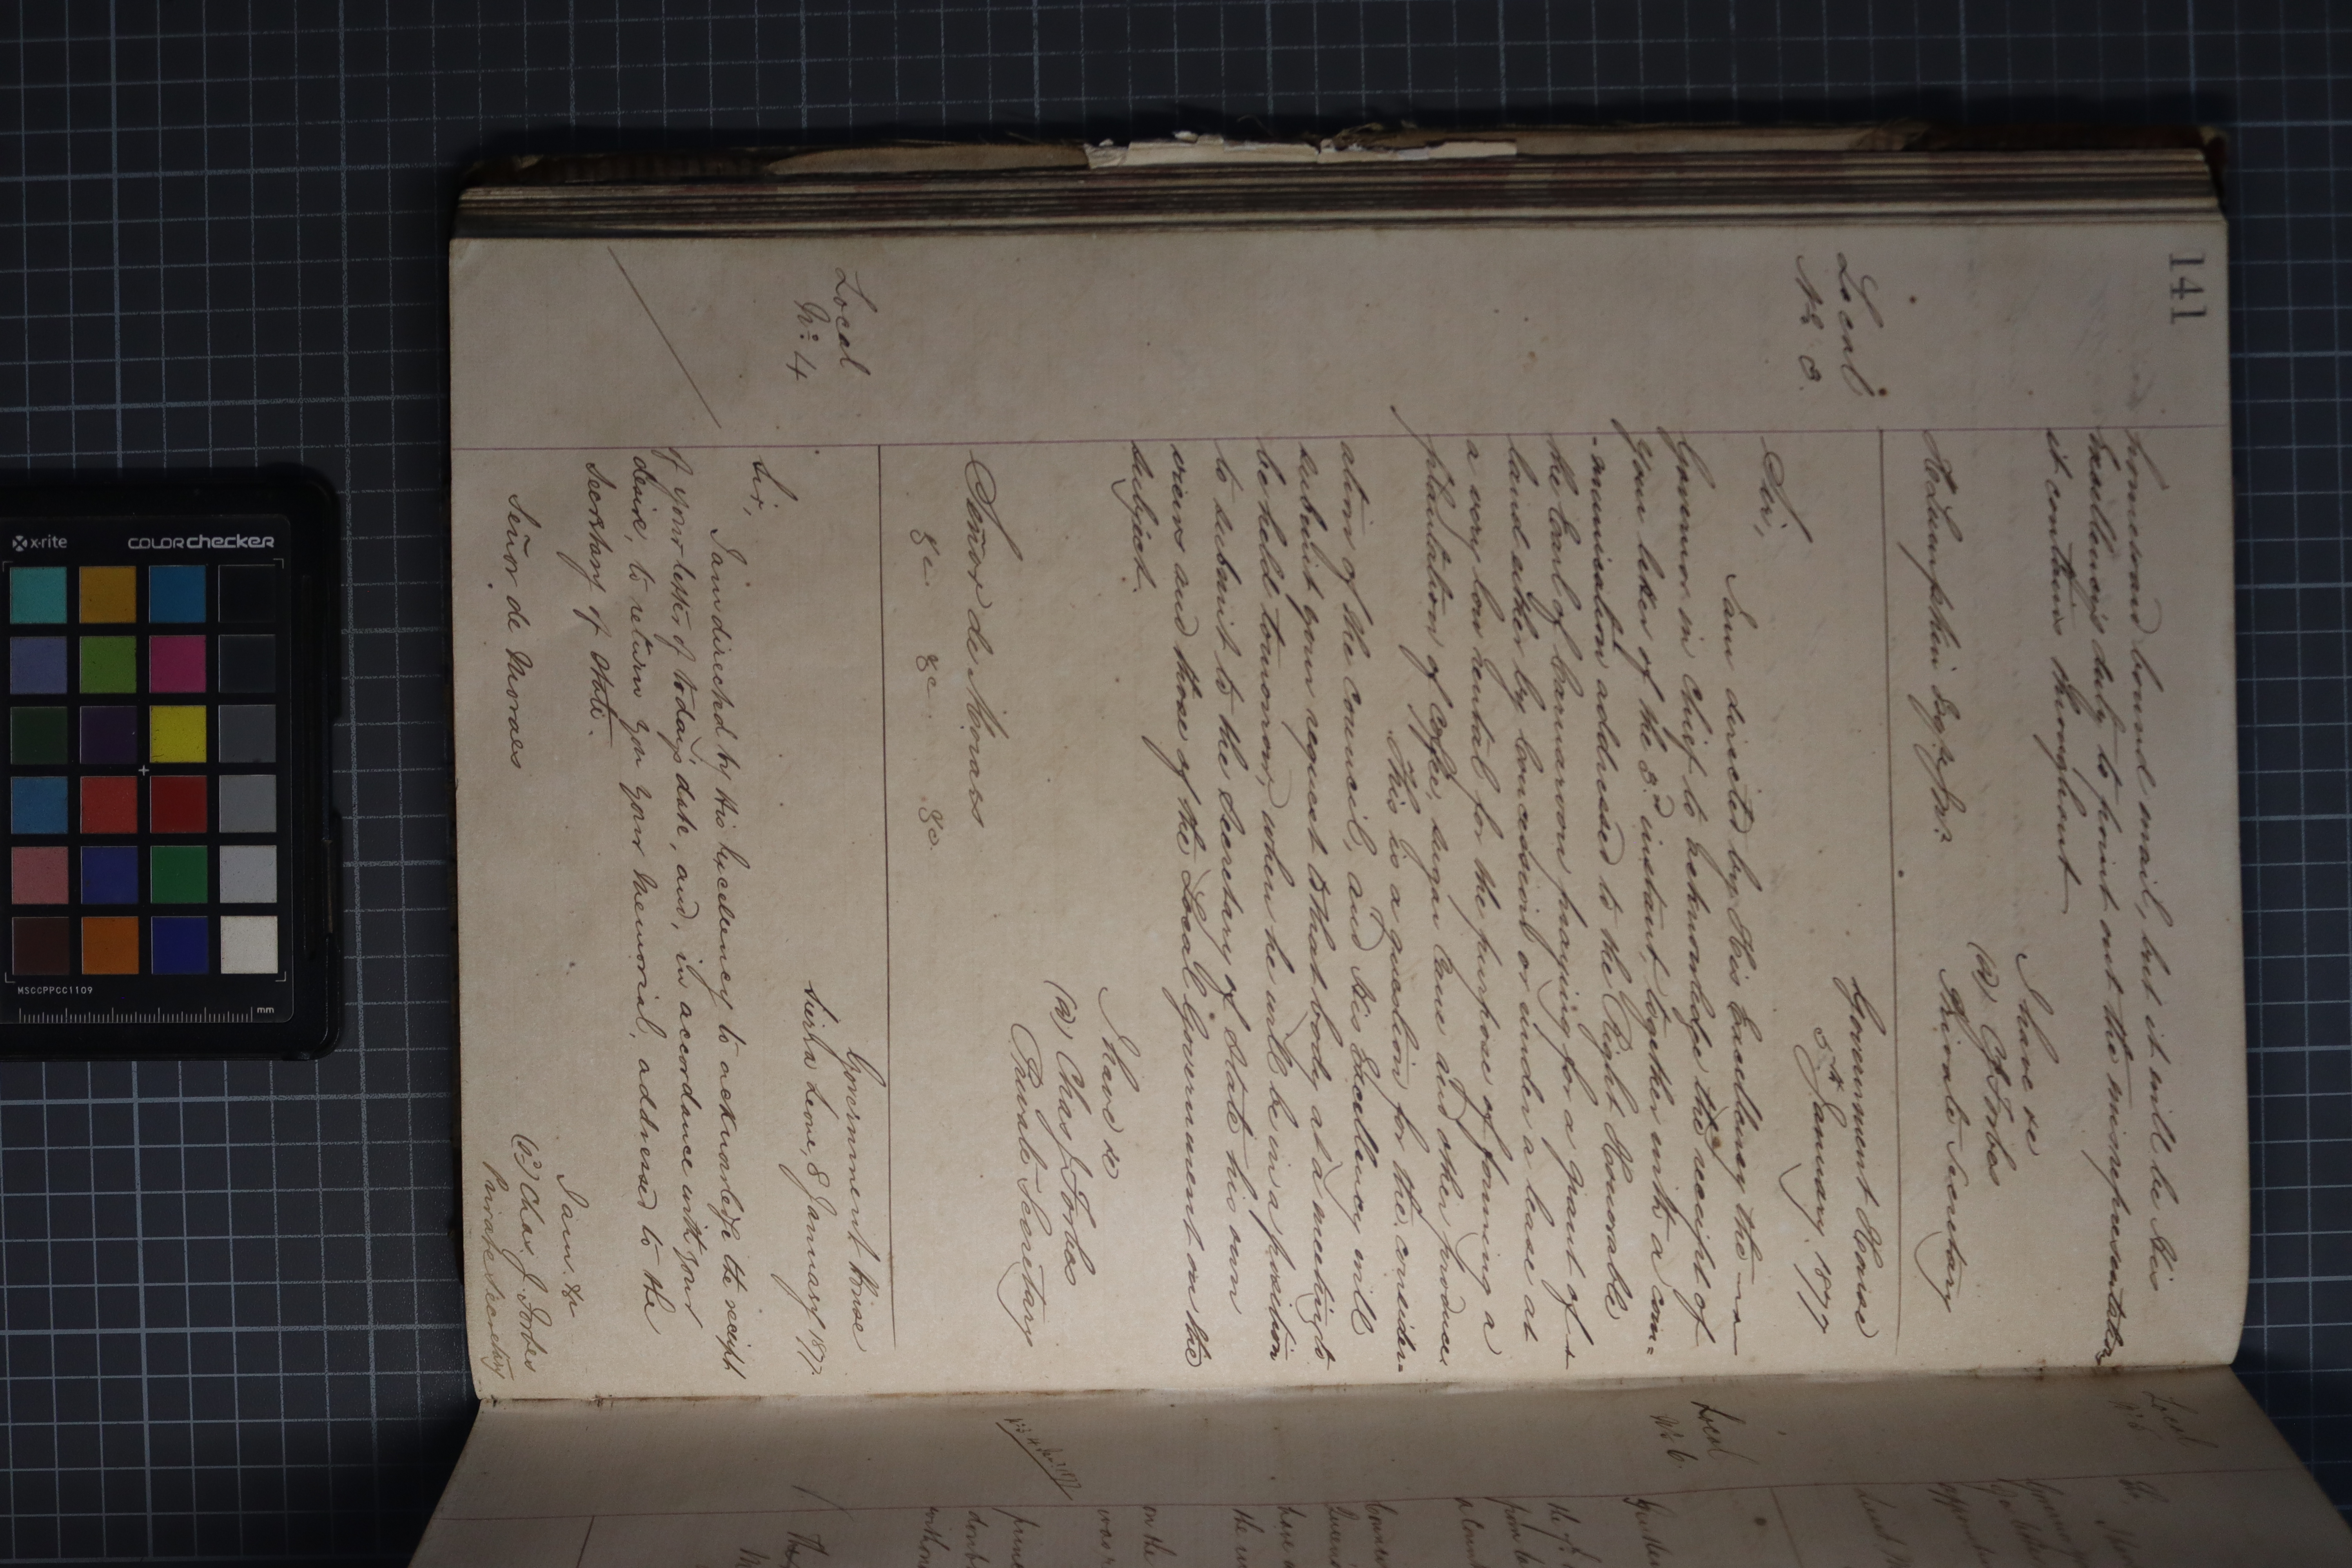 141
homeward bound mail, but it will be His
Excellency's duty to point out the misrepresentations
it contains throughout
I have &c
(sd) C J Forbes
Private Secretary
Lumpkin Esqre
Local
No 3.
Government House
5th January, 1877
Sir,
I am directed by His Excellency the
Governor in chief to acknowledge the receipt of
your letter of the 3rd instant, together with a com=
-munication addressed to the Right Honorable
the Earl of Carnarvon praying for a grant of
land either by Concession or under a lease at
a very low rental for the purpose of forming a
plantation of Coffee, Sugar Cane and other produce.
This is a question for the consider=
ation of the Council, and His Excellency will
submit your request to that body at a meeting to
be held tomorrow, when he will be in a position
to submit to the Secretary of State his own
views and those of the Local Government on the
subject.
I have &c
(sd) Chas J. Forbes
Private Secretary
Señor de Moraes
&c &c &c.
Local
No: 4
Government House
Sierra Leone, 8 January 1877.
Sir,
I am directed by His Excellency to acknowledge the receipt
of your letter of today's date, and, in accordance with your
desire, to return you your Memorial, addressed to the
Secretary of State.
I am, &c
(sd) Chas J. Forbes
Private Secretary
Señor de Moraes
Local
No 5
Local
No 6.